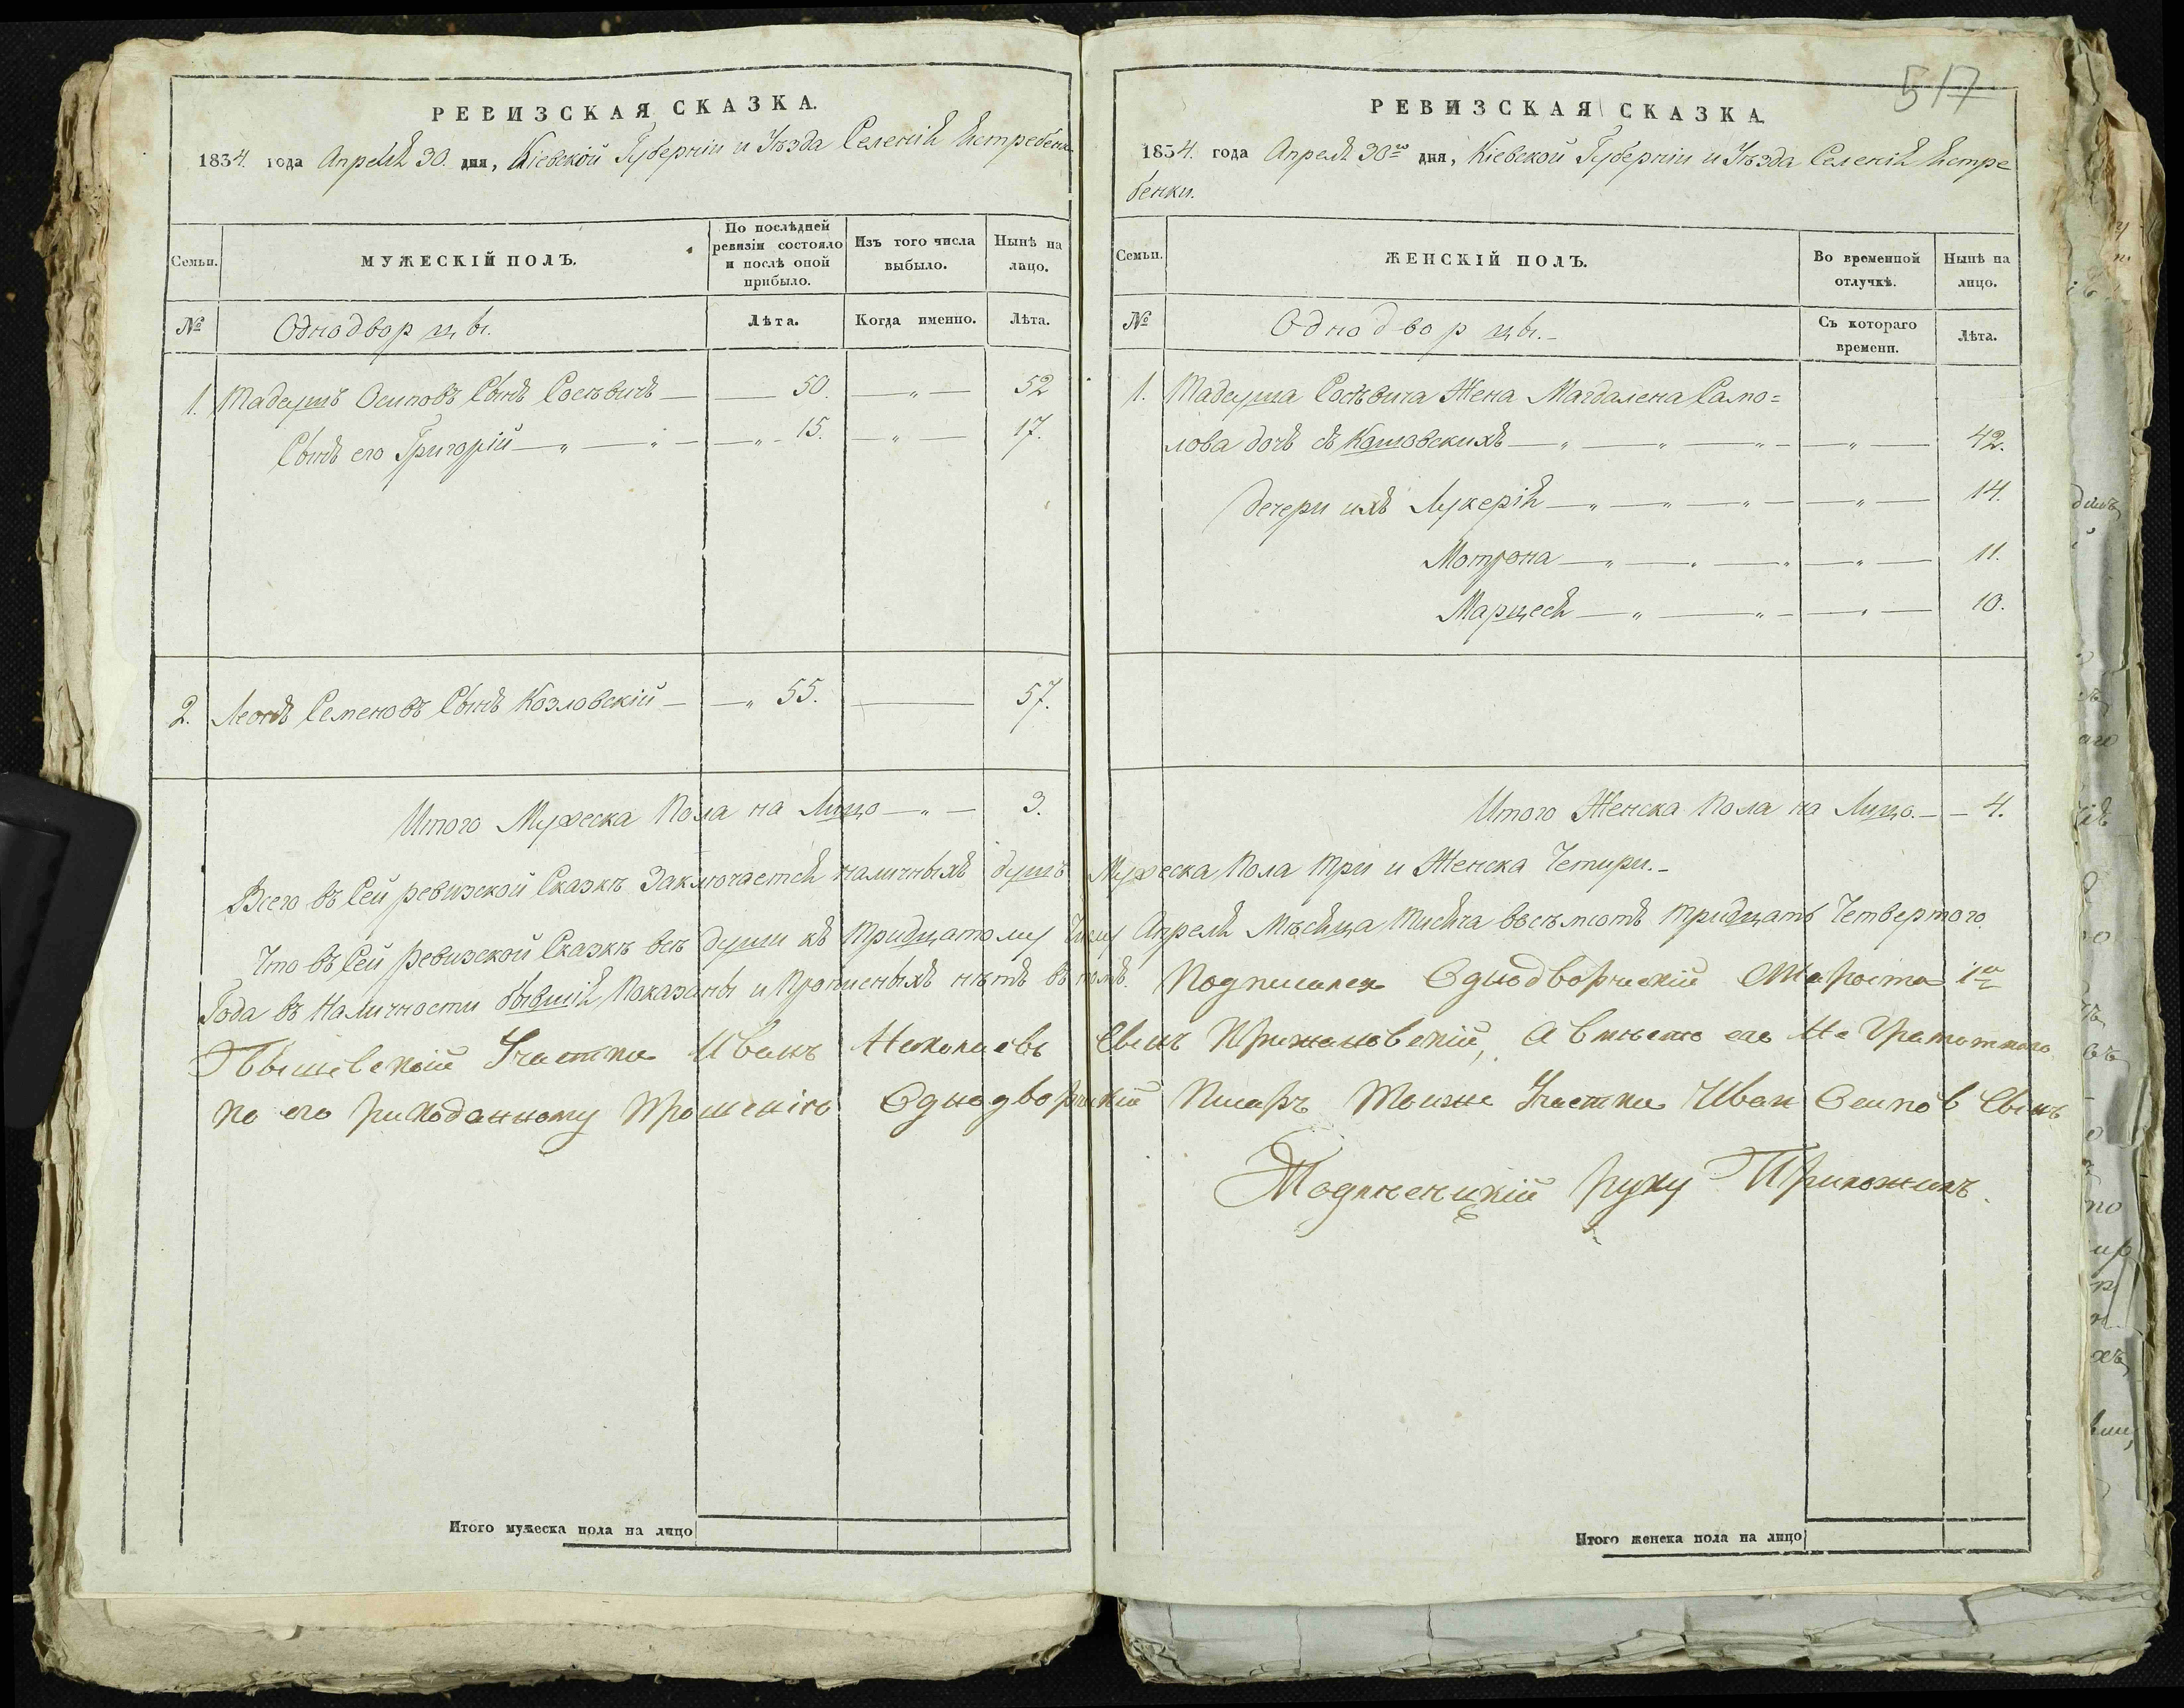 РЕВИЗСКАЯ СКАЗКА.
1834. года Апреля 30. дня, Кіевской Губерніи и Уѣзда Селенія Ястребенк
Семьи.
МУЖЕСКІЙ ПОЛЪ.
По послѣдней ревизіи состояло и послѣ оной прибыло.
Изъ того числа выбыло.
Нынѣ на лицо.
№
Однодворцы.
Лѣта.
Когда именно.
Лѣта.
1. Тадеушъ Осиповъ Сынъ Росѣвичъ 50. 52
Сынъ его Григорій 15. 17.
2. Леонъ Семеновъ Сынъ Козловскій 55. 57.
Итого Мужеска Пола на Лицо 3.
РЕВИЗСКАЯ СКАЗКА
517
1834. года Апреля 30го дня, Кіевской Губерніи и Уѣзда Селенія Ястре
бенки.
Семьи.
ЖЕНСКІЙ ПОЛЪ.
Во временной отлучкѣ.
Нынѣ на лицо.
№
Однодворцы.
Съ котораго времени.
Лѣта.
1. Тадеуша Росѣвича Жена Магдалена Само=
лова дочь съ Кошовскихъ 42.
Дечери ихъ Лукерія 14.
Мотрона 11.
Марцеся 10.
Итого Женска Пола на Лицо. 4.
Всего въ Сей ревизской Сказкѣ Заключается наличныхъ душъ Мужеска Пола три и Женска Четыри.
Что въ Сей ревизской Сказкѣ всѣ души къ тридцатому Числу Апреля Мѣсяца тисяча восѣмсотъ тридцать Четвертого
Года въ Наличности бывшія Показаны и Прописныхъ нѣтъ въ томъ. Подписался Однодворческій Староста 1го
Участка Иванъ Сынъ Кржижановскій, А вмѣсто его Не Грамотного
по его рукоданному Прошенію Однодворческій Писаръ Тогоже Участка Иван Осипов Сынъ
руку Приложилъ.
Итого мужеска пола на лицо
Итого женска пола на лицо